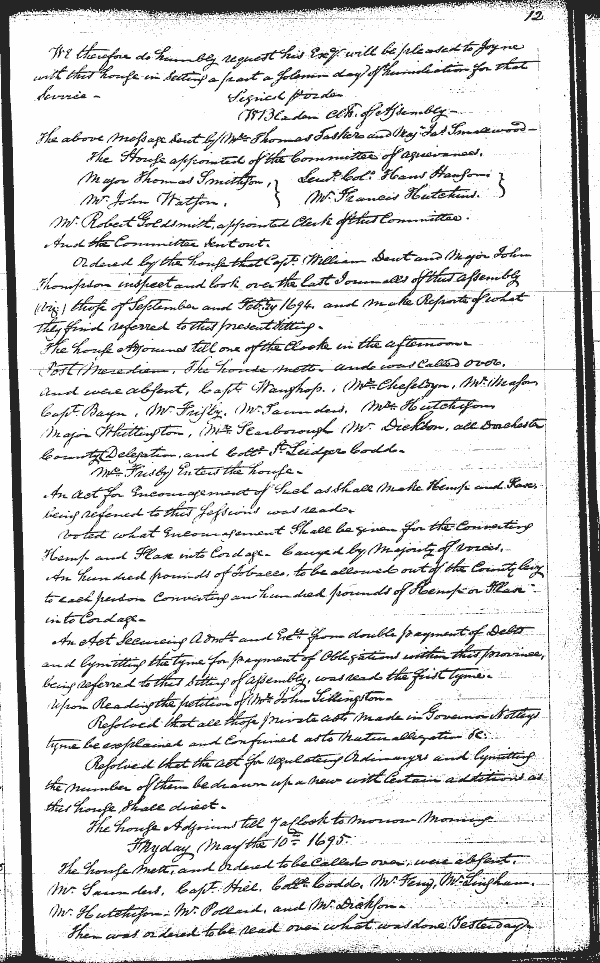 12
We therefore do humbly request his Exc.y will be pleased to Joyne
with this house in setting a part a Solemn day of humiliation for that
Service -
Signed p order
W Bladen Clk. of Assembly -
The above message sent by Mr. Thomas Tasker and Majr. Jas. Smallwood -
The House appointed of the Committee of agrievances.
Major Thomas Smithson, } Lieut. Col. Hans Hanson }
Mr. John Watson, Mr. Francis Hutchins.
Mr. Robert Goldsmith, appointed Clerk of this Committee.
And the Committee sent out.
Ordered by the house that Capt. William Dent and Major John
Thompson inspect and look over the last Journalls of this assembly
(viz) those of September and Feb.ry 1694. and make Report of what
they find referred to this present sitting -
The house Adjourned till one of the Clocke in the afternoon -
Post Meridiem. The house mett - and was called over.
And were absent, Capt. Waughop., Mr. Cheseldyn, Mr. Mason
Capt. Bayn, Mr. Frisby, Mr. Saunders, Mr. Hutchison
Major Whittington, Mr. Scarborough Mr. Dickson, all Dorchester
County Delegation, and Coll. St. Leidger Codd -
Mr. Frisby Enters the house -
An Act for Encouragement of Such as Shall make Hemp and Flax,
being referred to this Sessions was read.
Voted what Encouragement Shall be given for the Converting
Hemp and Flax into Cordage - Carryed by Majority of voices,
An hundred pounds of tobacco, to be allowed out of the County levy
to each person Converting an hundred pounds of Hemp or Flax
into Cordage -
An Act Secureing Admrs. and Exrs. from double payment of Debts
and Lymitting the tyme for payment of Obligations within this province,
being referred to this Sitting of assembly, was read the first tyme -
Upon Reading the petition of Mr. John Sillingston -
Resolved that all those private acts made in Governor Notleys
tyme be explained and Confirmed as to Naturallization &c.
Resolved that the act for regulating Ordinarys and Lymitting
the number of them be drawn up a new with Certain additions as
this house Shall direct -
The house Adjourns till 7 aClock to morrow Morning
Fryday May the 10th. 1695.
The house Mett, and Ordered to be Called over, were absent.
Mr. Saunders, Capt. Hill, Coll. Codd, Mr. Mr. Lingham.
Mr. Hutchison - Mr. Pollard, and Mr. Dickson -
Then was ordered to be read over what was done Yesterday -